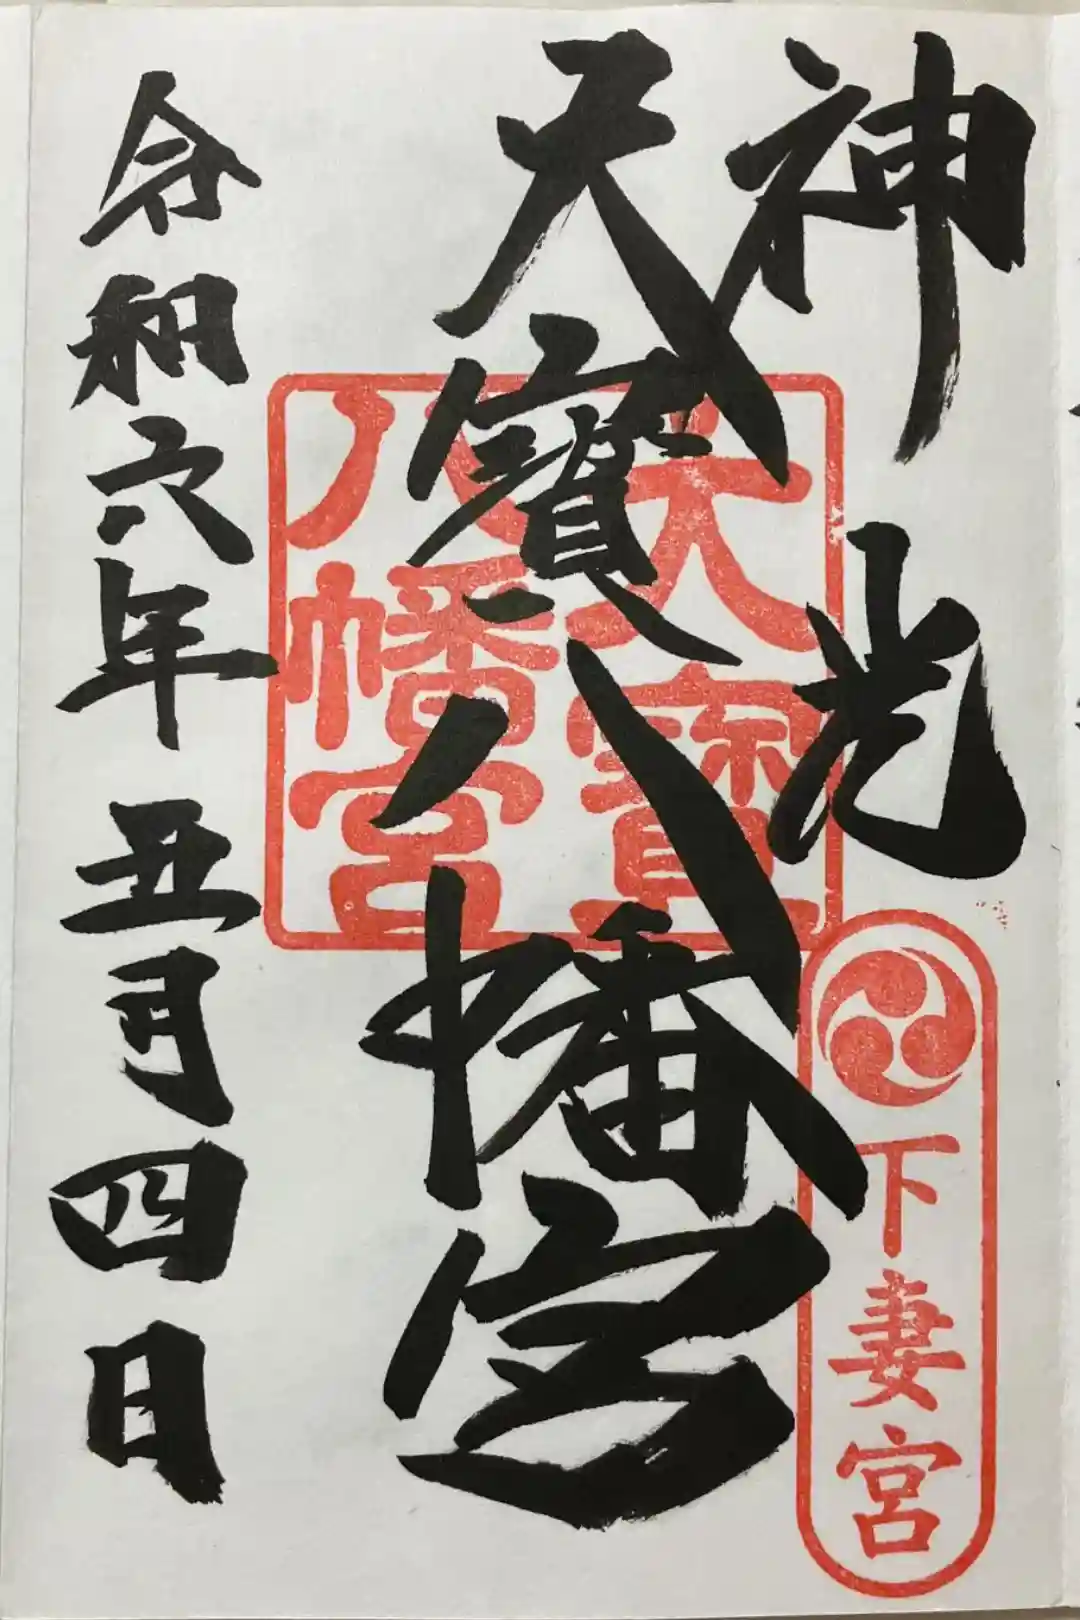 神光
大寶八幡宮
令和六年五月四日
大寶
八幡宮
下妻宮